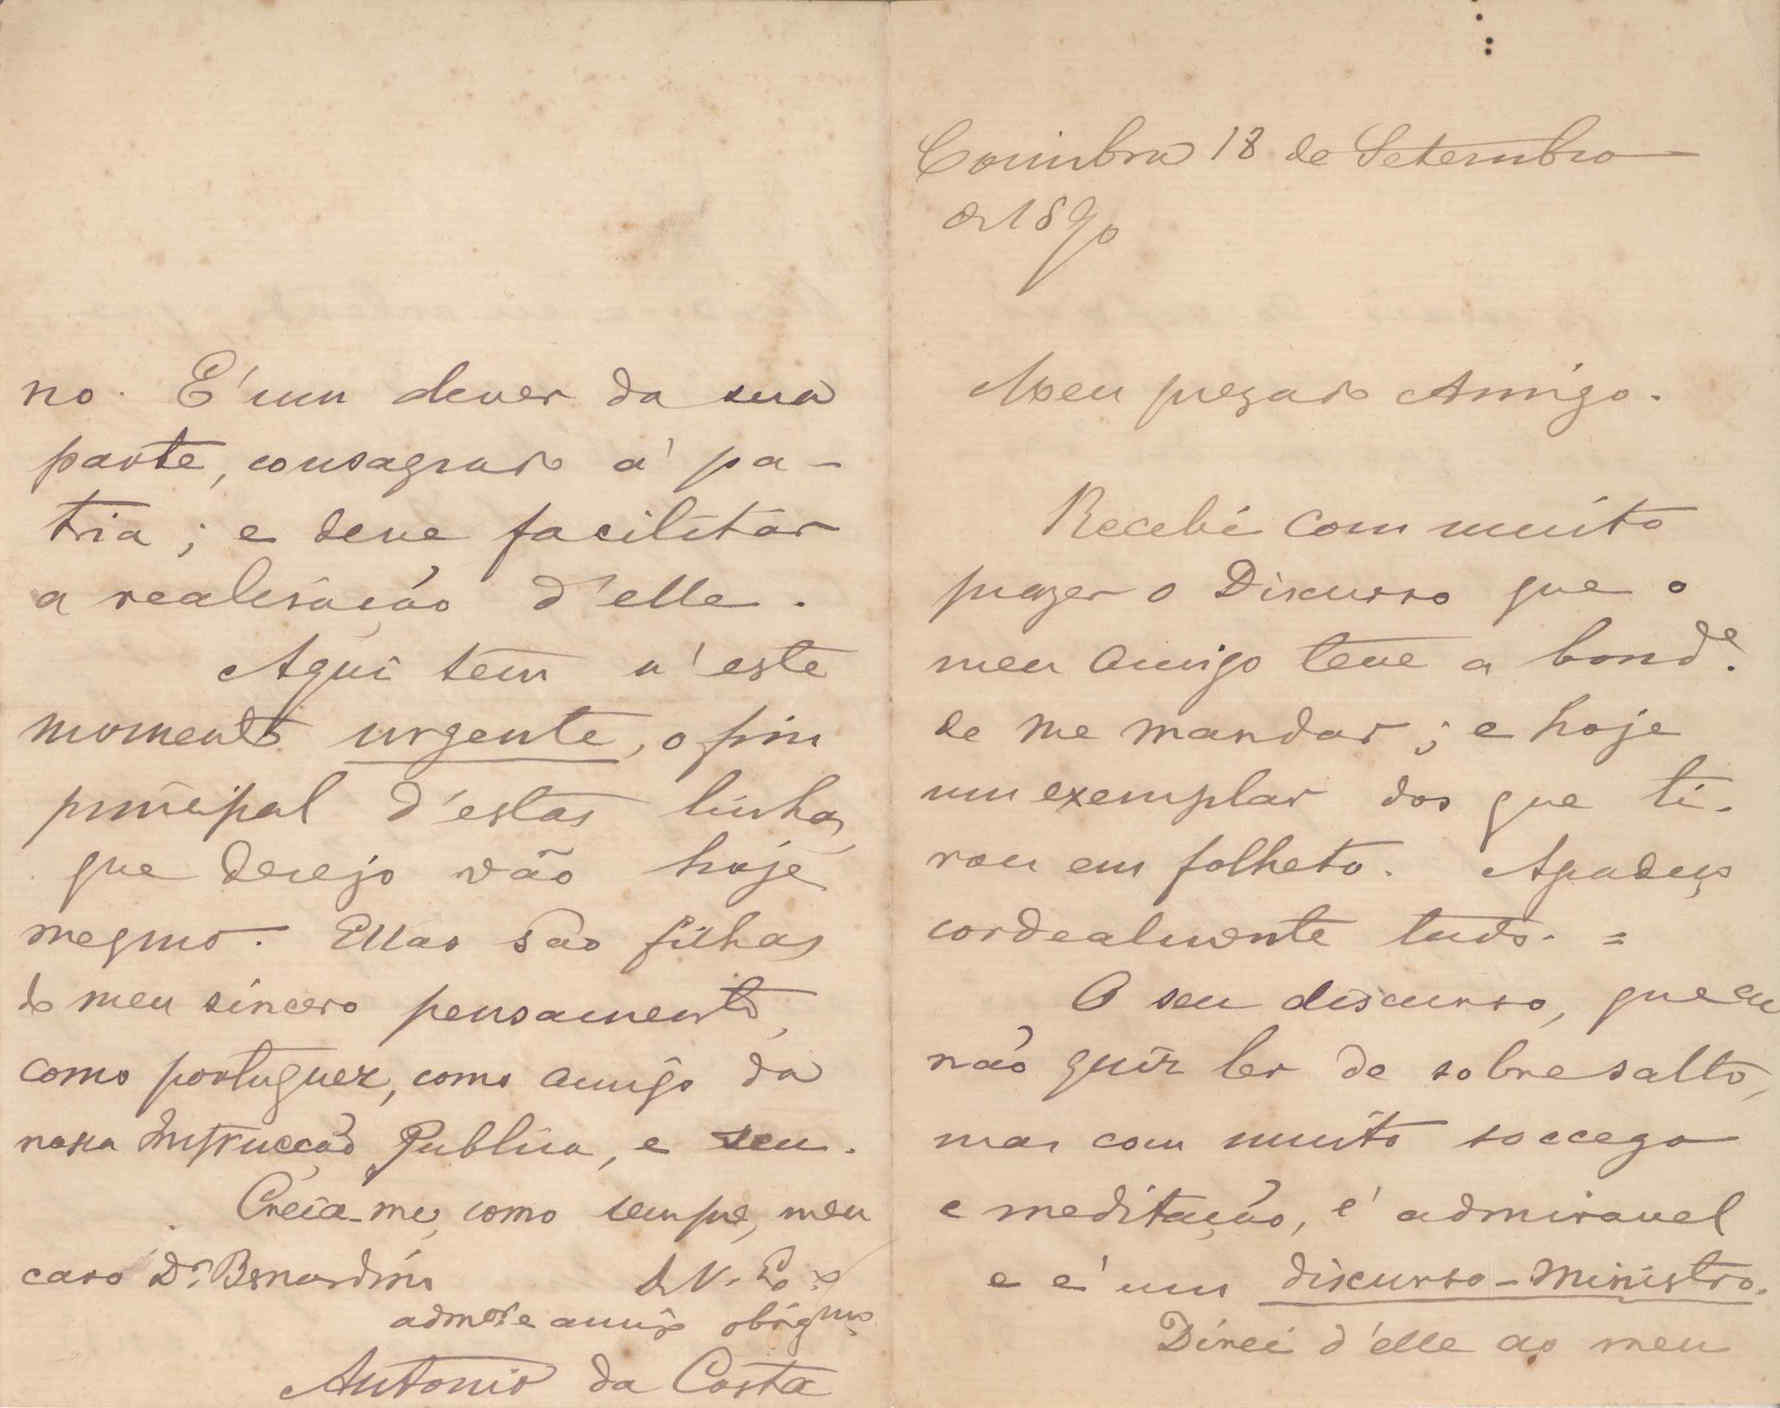 Coimbra 18 de Setembro
de 1890
Meu prezado Amigo.
Recebi com muito
prazer o Discurso que o
meu amigo teve a bond.de
de me mandar; e hoje
um exemplar dos que ti-
rou em folheto. Agradeço
cordealmente tudo. =
O seu discurso, que eu
não quiz ler de sobresalto,
mas com muito soccego
e meditação, é admiravel
e é um discurso-Ministro.
Direi d'elle ao meu
no. É um dever da sua
parte, consagrado á pa-
tria; e deve facilitar
a realisação d'elle.
Aqui tem n'este
momento urgente, o fim
principal d'estas linhas,
que desejo vão hoje
mesmo. Ellas são filhas
do meu sincero pensamento,
como portuguez, como amigo da
nossa Instrucção Publica, e seu.
Creia-me, como sempre, meu
caro Dr. Bernardino
de V. Ex.a
admor. e amigo obrigmo
Antonio da Costa